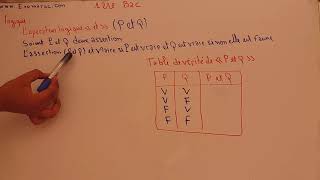 www.Exomaroc.com
1ère Bac
logique
L'opération logique « et » (P et Q)
Soient P et Q deux assertion
L'assertion (P et Q) est vraie si P est vraie et Q est vraie sinon elle est Fausse
Table de vérité de « P et Q »
P Q P et Q
V V
V F
F V
F F